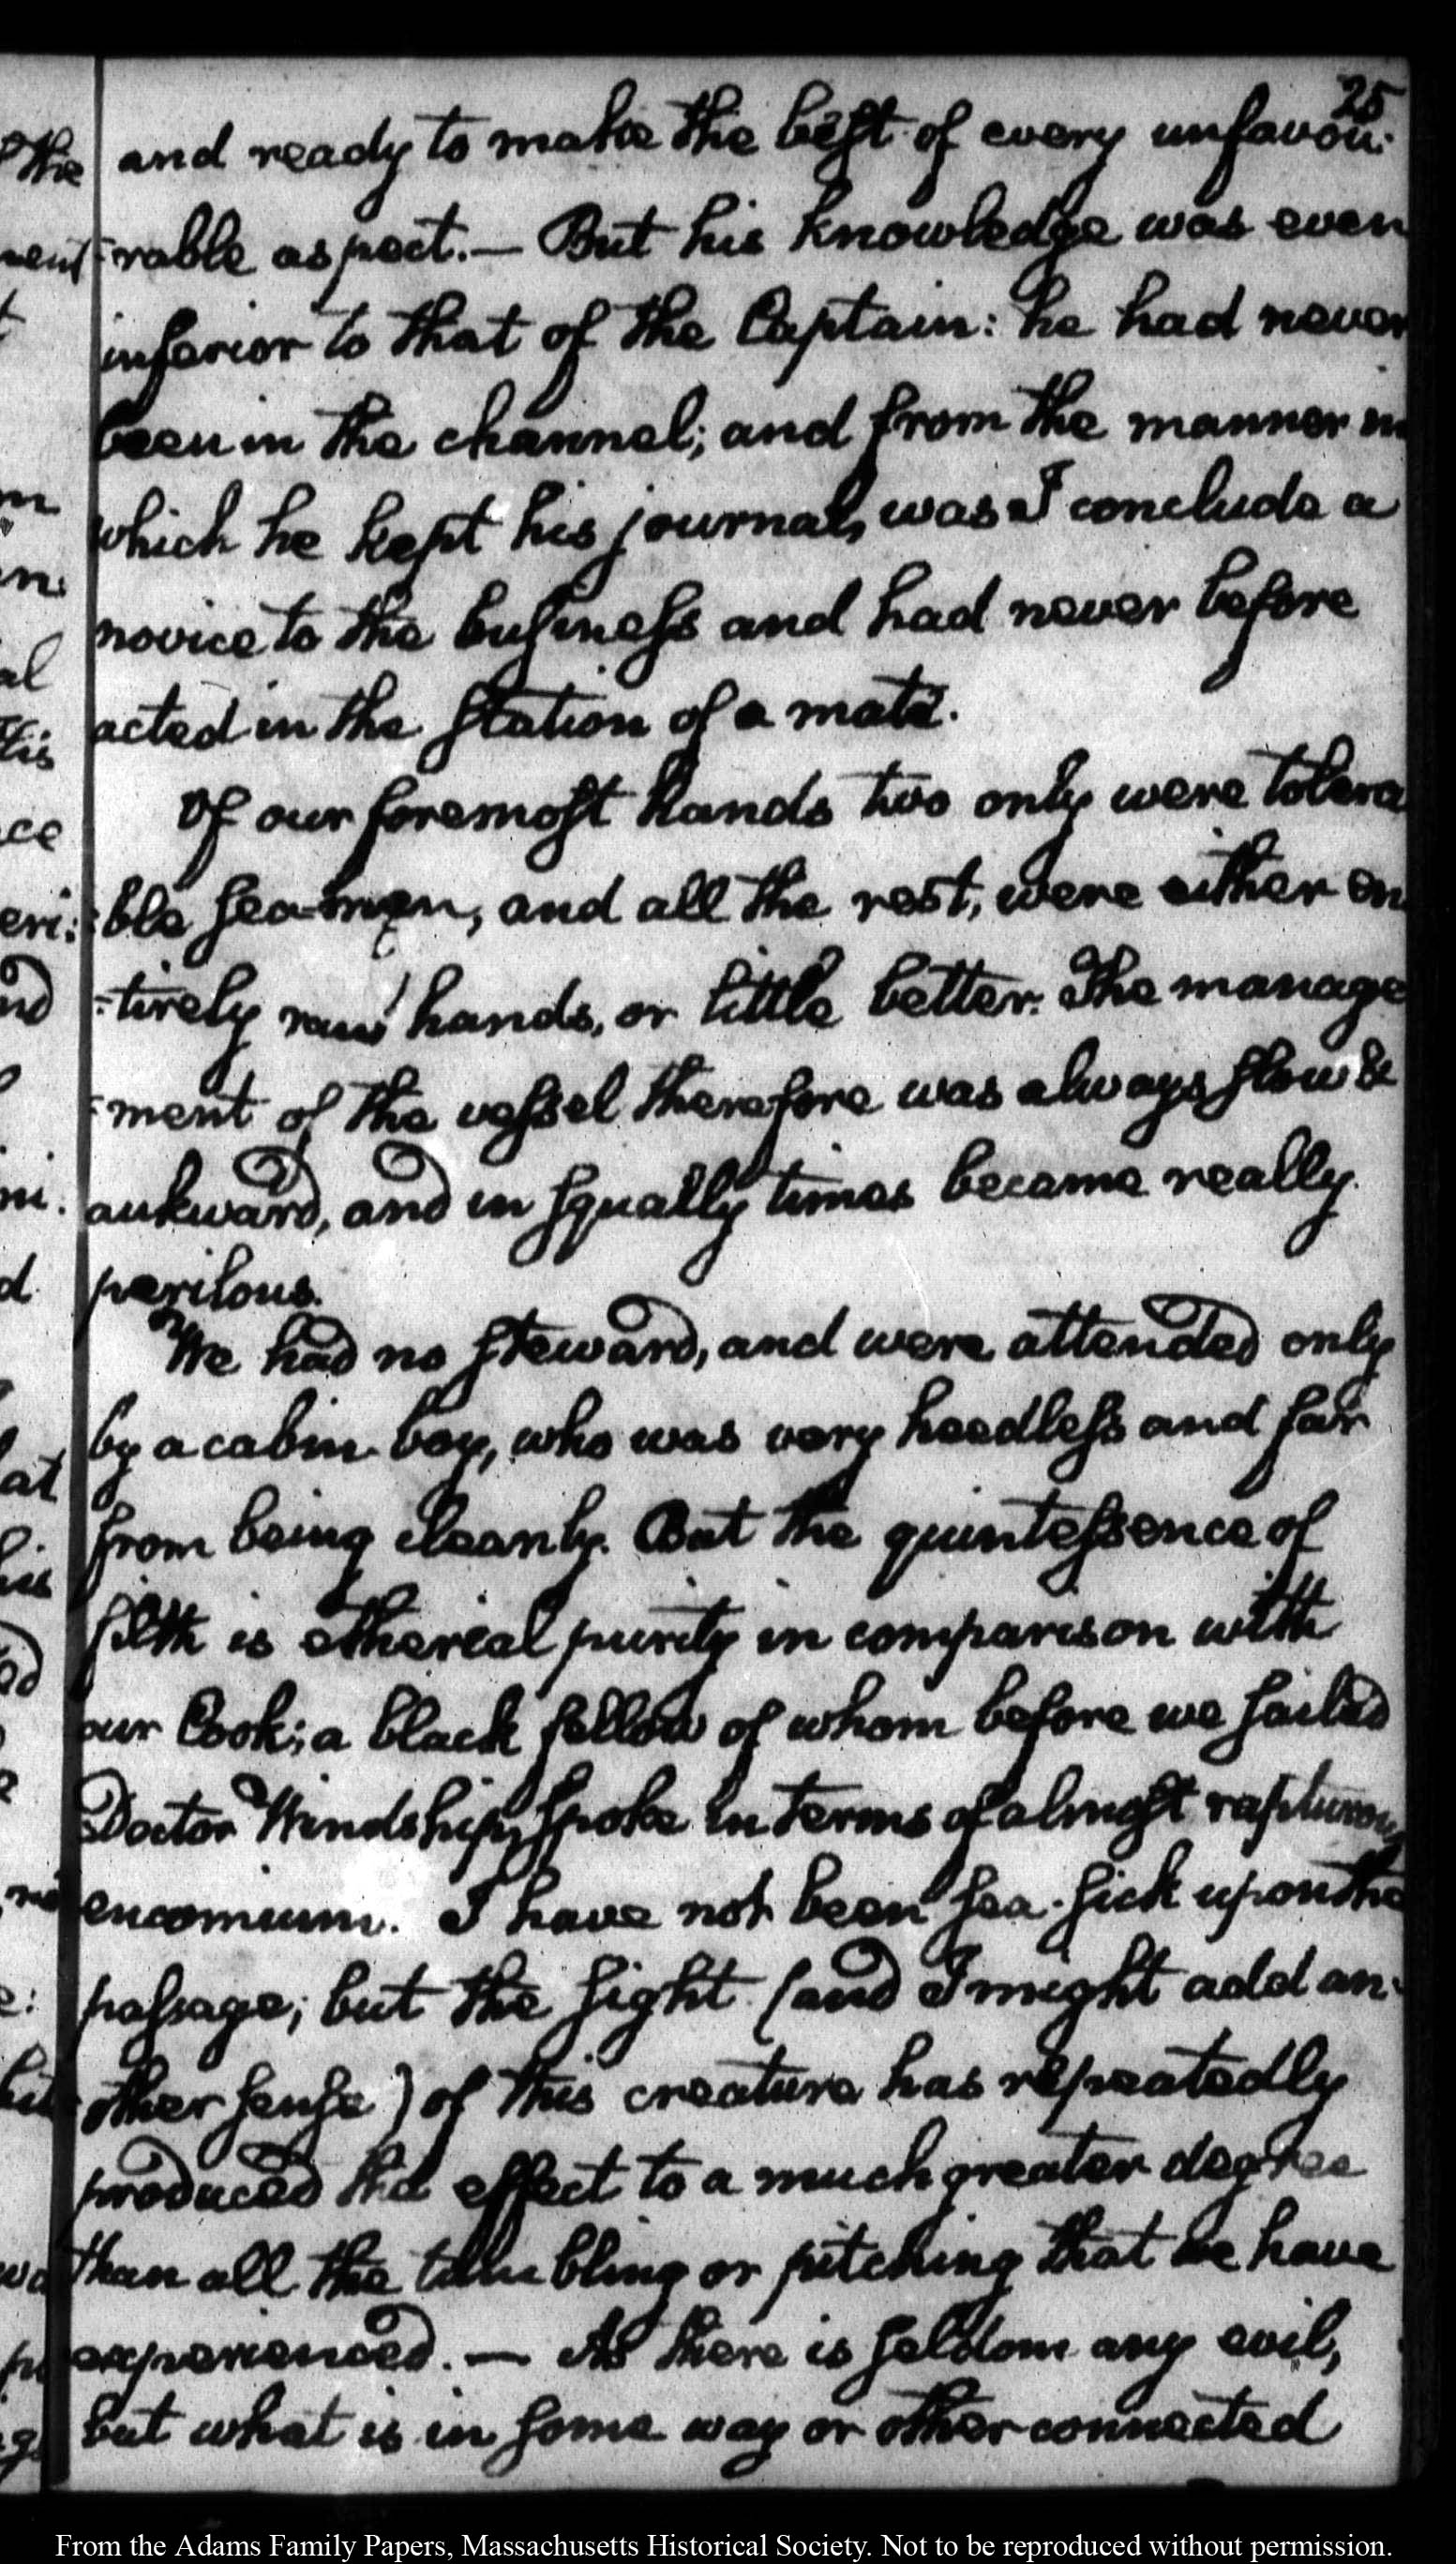 25
and ready to make the best of every unfavou:
:rable aspect.— But his knowledge was even
inferior to that of the Captain: he had never
been in the channel; and from the manner in
which he kept his journal, was I conclude a
novice to the business and had never before
acted in the station of a mate.
Of our foremost hands two only were tolera
:ble sea-men, and all the rest, were either en
:tirely raw hands, or little better. The manage
:ment of the vessel therefore was always slow &
aukward, and in squally times became really
perilous.
We had no steward, and were attended only
by a cabin boy, who was very heedless and far
from being cleanly. But the quintessence of
filth is ethereal purity in comparison with
our Cook; a black fellow of whom before we sailed
Doctor Windship spoke in terms of almost rapturous
encomium. I have not been sea-sick upon the
passage; but the sight (and I might add an-
other sense) of this creature has repeatedly
produced the effect to a much greater degree
than all the tumbling or pitching that we have
experienced. — As there is seldom any evil,
but what is in some way or other connected
From the Adams Family Papers, Massachusetts Historical Society. Not to be reproduced without permission.